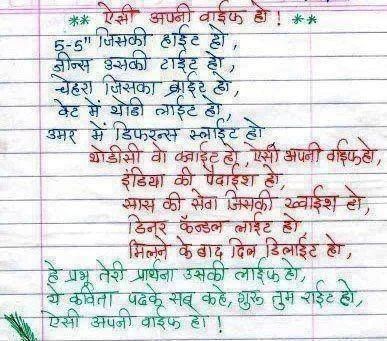 ** ऐसी अपनी वाईफ हो ! **
5-5" जिसकी हाईट हो,
जीन्स उसकी टाईट हो,
चेहरा जिसका ब्राईट हो,
वेट में थोडी लाईट हो,
उमर में डिफरन्स स्लाईट हो
थोडीसी वो क्वाईट हो, ऐसी अपनी वाईफ हो,
इंडिया की पैदाईश हो,
सास की सेवा जिसकी ख्वाईश हो,
डिनर कॅन्डल लाईट हो,
मिलने के बाद दिल डिलाईट हो,
हे प्रभू तेरी प्रार्थना उसकी लाईफ हो,
ये कविता पढके सब कहे, गुरू तुम राईट हो,
ऐसी अपनी वाईफ हो !